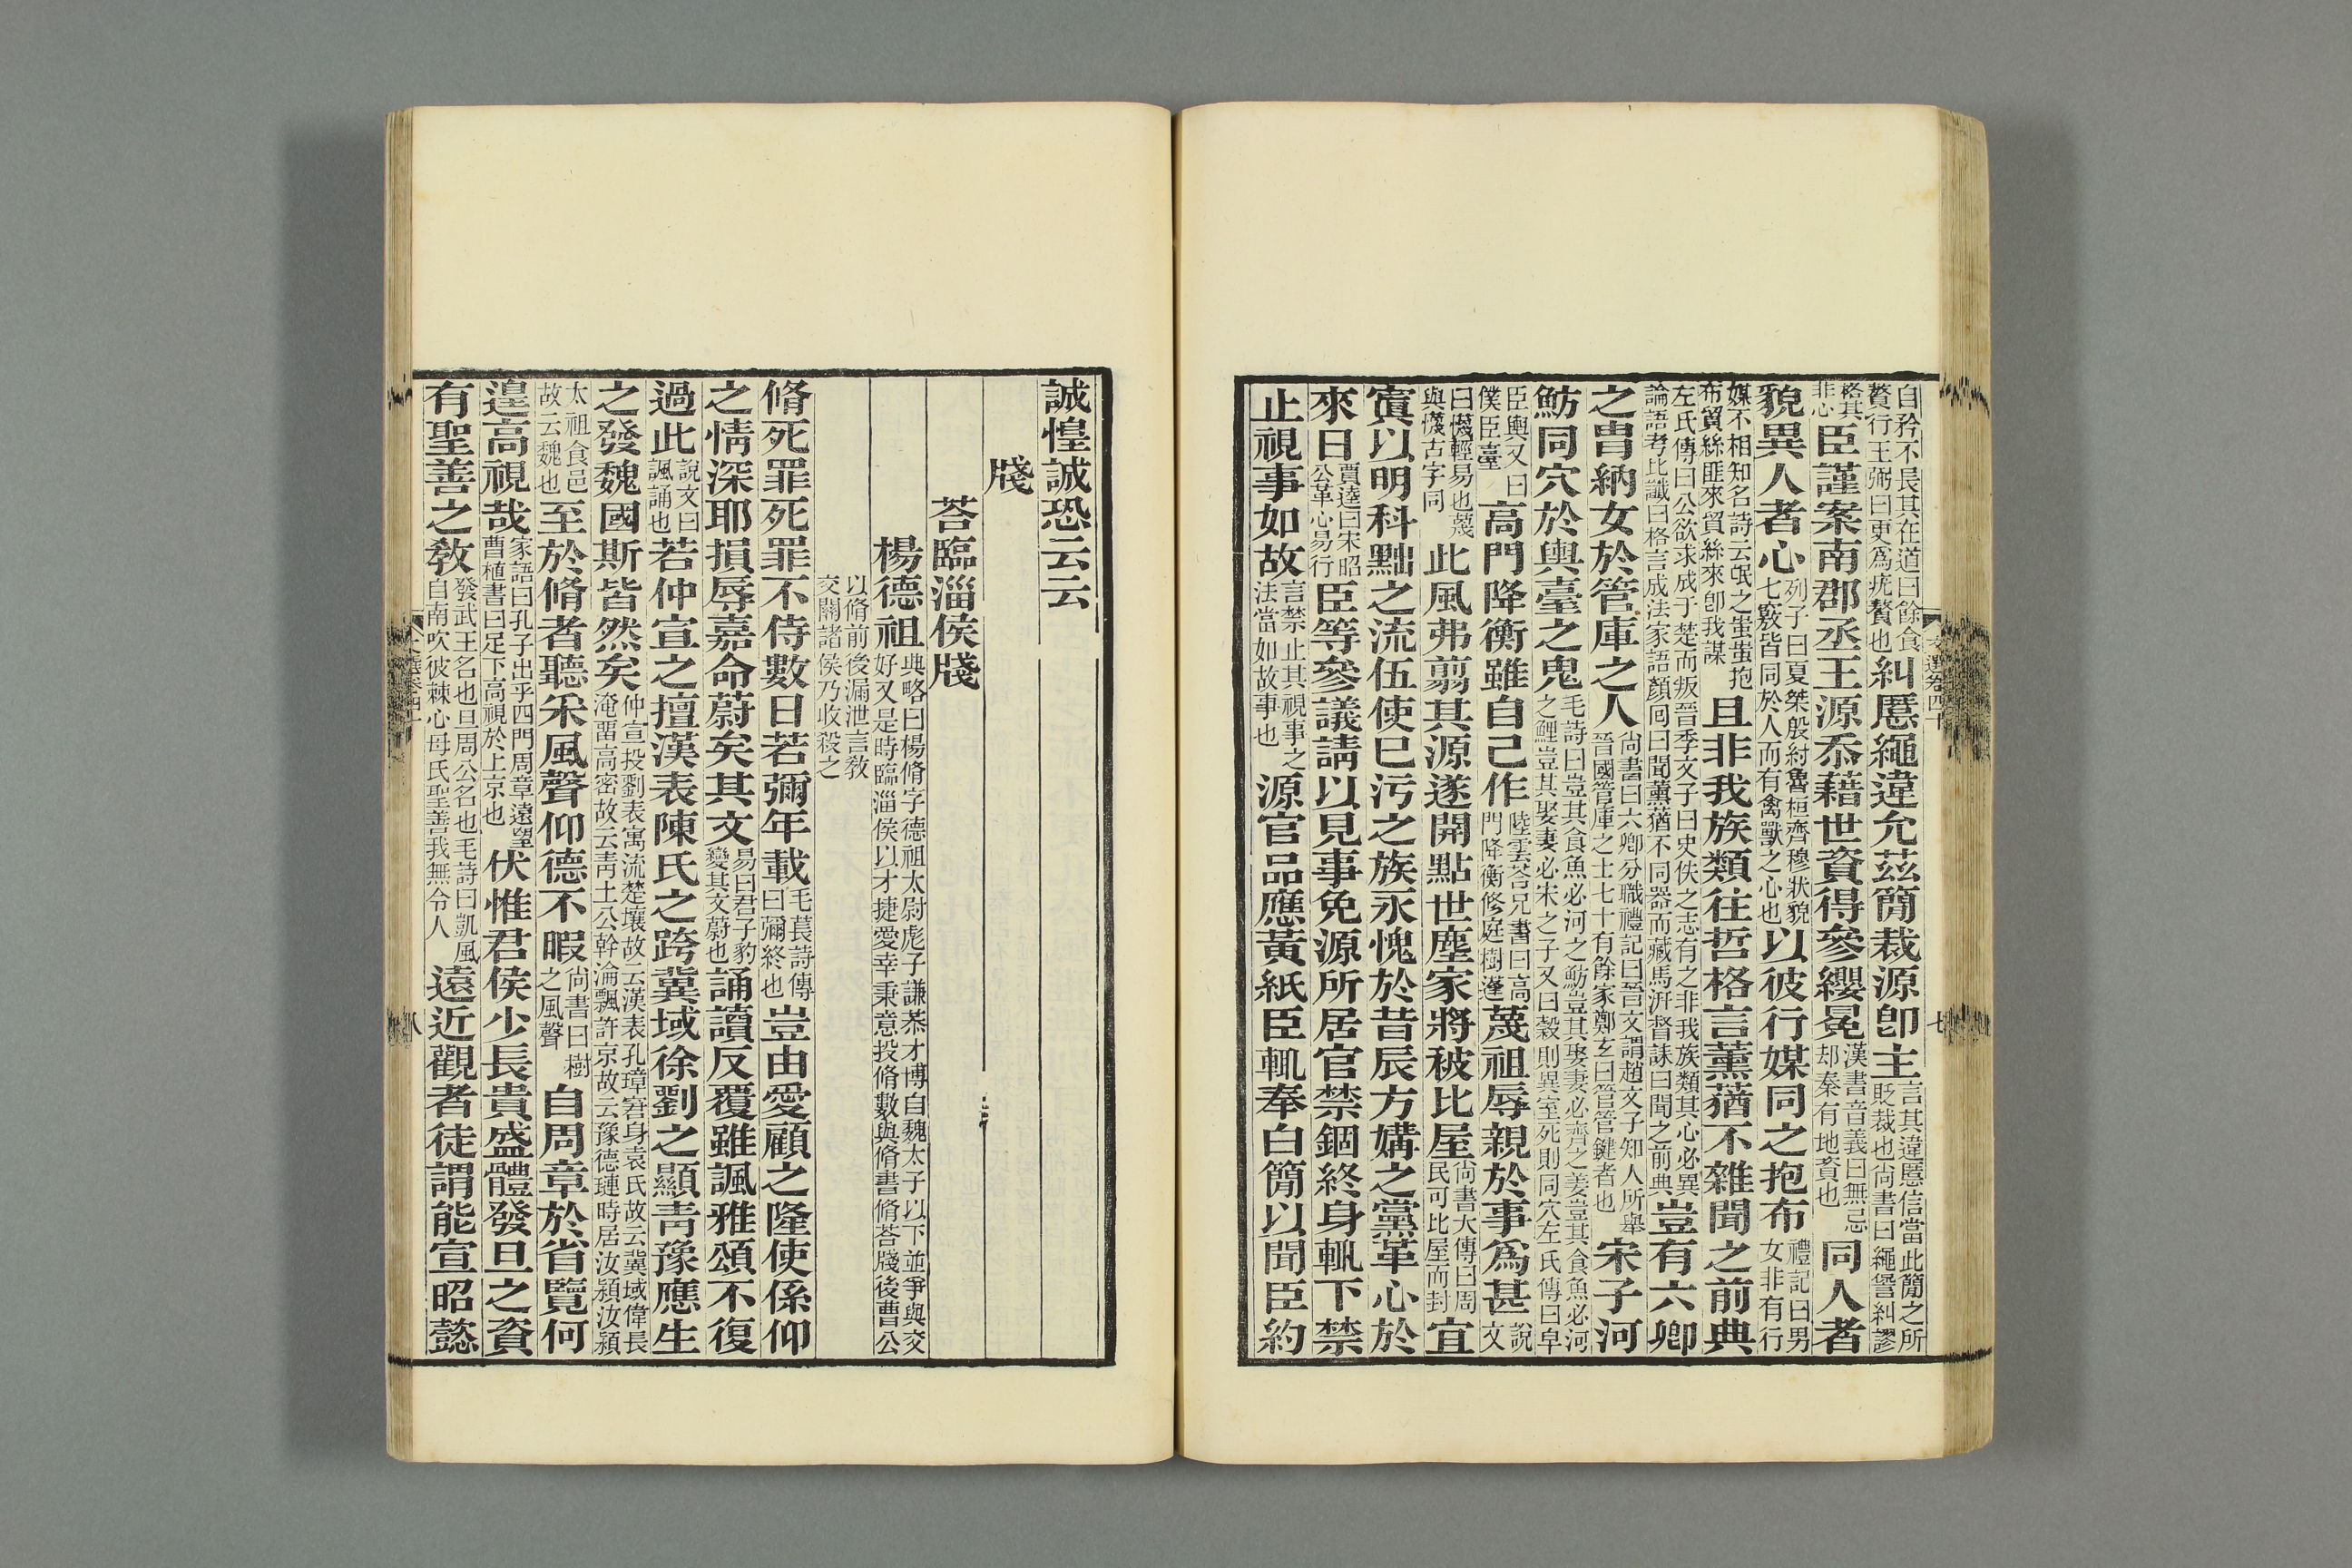 自矜不長其在道曰餘食
贅行王弼曰更爲疣贅也糾慝繩違允茲簡裁源卽主言其違慝信當此簡之所
貶裁也尚書曰繩愆糾謬
格其
非心臣謹案南郡丞王源忝藉世資得參纓冕漢書音義曰無忌
却秦有地資也同人者
貌異人者心列子曰夏桀殷紂魯桓齊穆狀貌
七竅皆同於人而有禽獸之心也以彼行媒同之抱布禮記曰男
女非有行
媒不相知名詩云氓之蚩蚩抱
布貿絲匪來貿絲來卽我謀且非我族類往哲格言薰蕕不雜聞之前典
左氏傳曰公欲求成于楚而叛晉季文子曰史佚之志有之非我族類其心必異
論語考比讖曰格言成法家語顏回曰聞薰蕕不同器而藏馬汧督誄曰聞之前典豈有六卿
之胄納女於管庫之人尚書曰六卿分職禮記曰晉文謂趙文子知人所舉
晉國管庫之士七十有餘家鄭玄曰管管鍵者也宋子河
魴同穴於輿臺之鬼毛詩曰豈其食魚必河之魴豈其娶妻必齊之姜豈其食魚必河
之鯉豈其娶妻必宋之子又曰穀則異室死則同穴左氏傳曰皁
臣輿又曰
僕臣臺高門降衡雖自己作陸雲荅兄書曰高
門降衡修庭樹蓬蔑祖辱親於事爲甚說
文
曰懱輕易也蔑
與懱古字同此風弗翦其源遂開點世塵家將被比屋尚書大傳曰周
民可比屋而封宜
寘以明科黜之流伍使已污之族永愧於昔辰方媾之黨革心於
來日賈逵曰宋昭
公革心易行臣等參議請以見事免源所居官禁錮終身輒下禁
止視事如故言禁止其視事之
法當如故事也源官品應黃紙臣輒奉白簡以聞臣約
文選卷四十
七
誠惶誠恐云云
牋
荅臨淄侯牋
楊德祖典略曰楊脩字德祖太尉彪子謙恭才博自魏太子以下並爭與交
好又是時臨淄侯以才捷愛幸秉意投脩數與脩書脩荅牋後曹公
以脩前後漏泄言敎
交關諸侯乃收殺之
脩死罪死罪不侍數日若彌年載毛萇詩傳
曰彌終也豈由愛顧之隆使係仰
之情深耶損辱嘉命蔚矣其文易曰君子豹
變其文蔚也誦讀反覆雖諷雅頌不復
過此說文曰
諷誦也若仲宣之擅漢表陳氏之跨冀域徐劉之顯靑豫應生
之發魏國斯皆然矣仲宣投劉表寓流楚壤故云漢表孔璋窘身袁氏故云冀域偉長
淹畱高密故云靑土公幹淪飄許京故云豫德璉時居汝潁汝潁
太祖食邑
故云魏也至於脩者聽采風聲仰德不暇尚書曰樹
之風聲自周章於省覽何
遑高視哉家語曰孔子出乎四門周章遠望
曹植書曰足下高視於上京也伏惟君侯少長貴盛體發旦之資
有聖善之敎發武王名也旦周公名也毛詩曰凱風
自南吹彼棘心母氏聖善我無令人遠近觀者徒謂能宣昭懿
文選卷四十
八